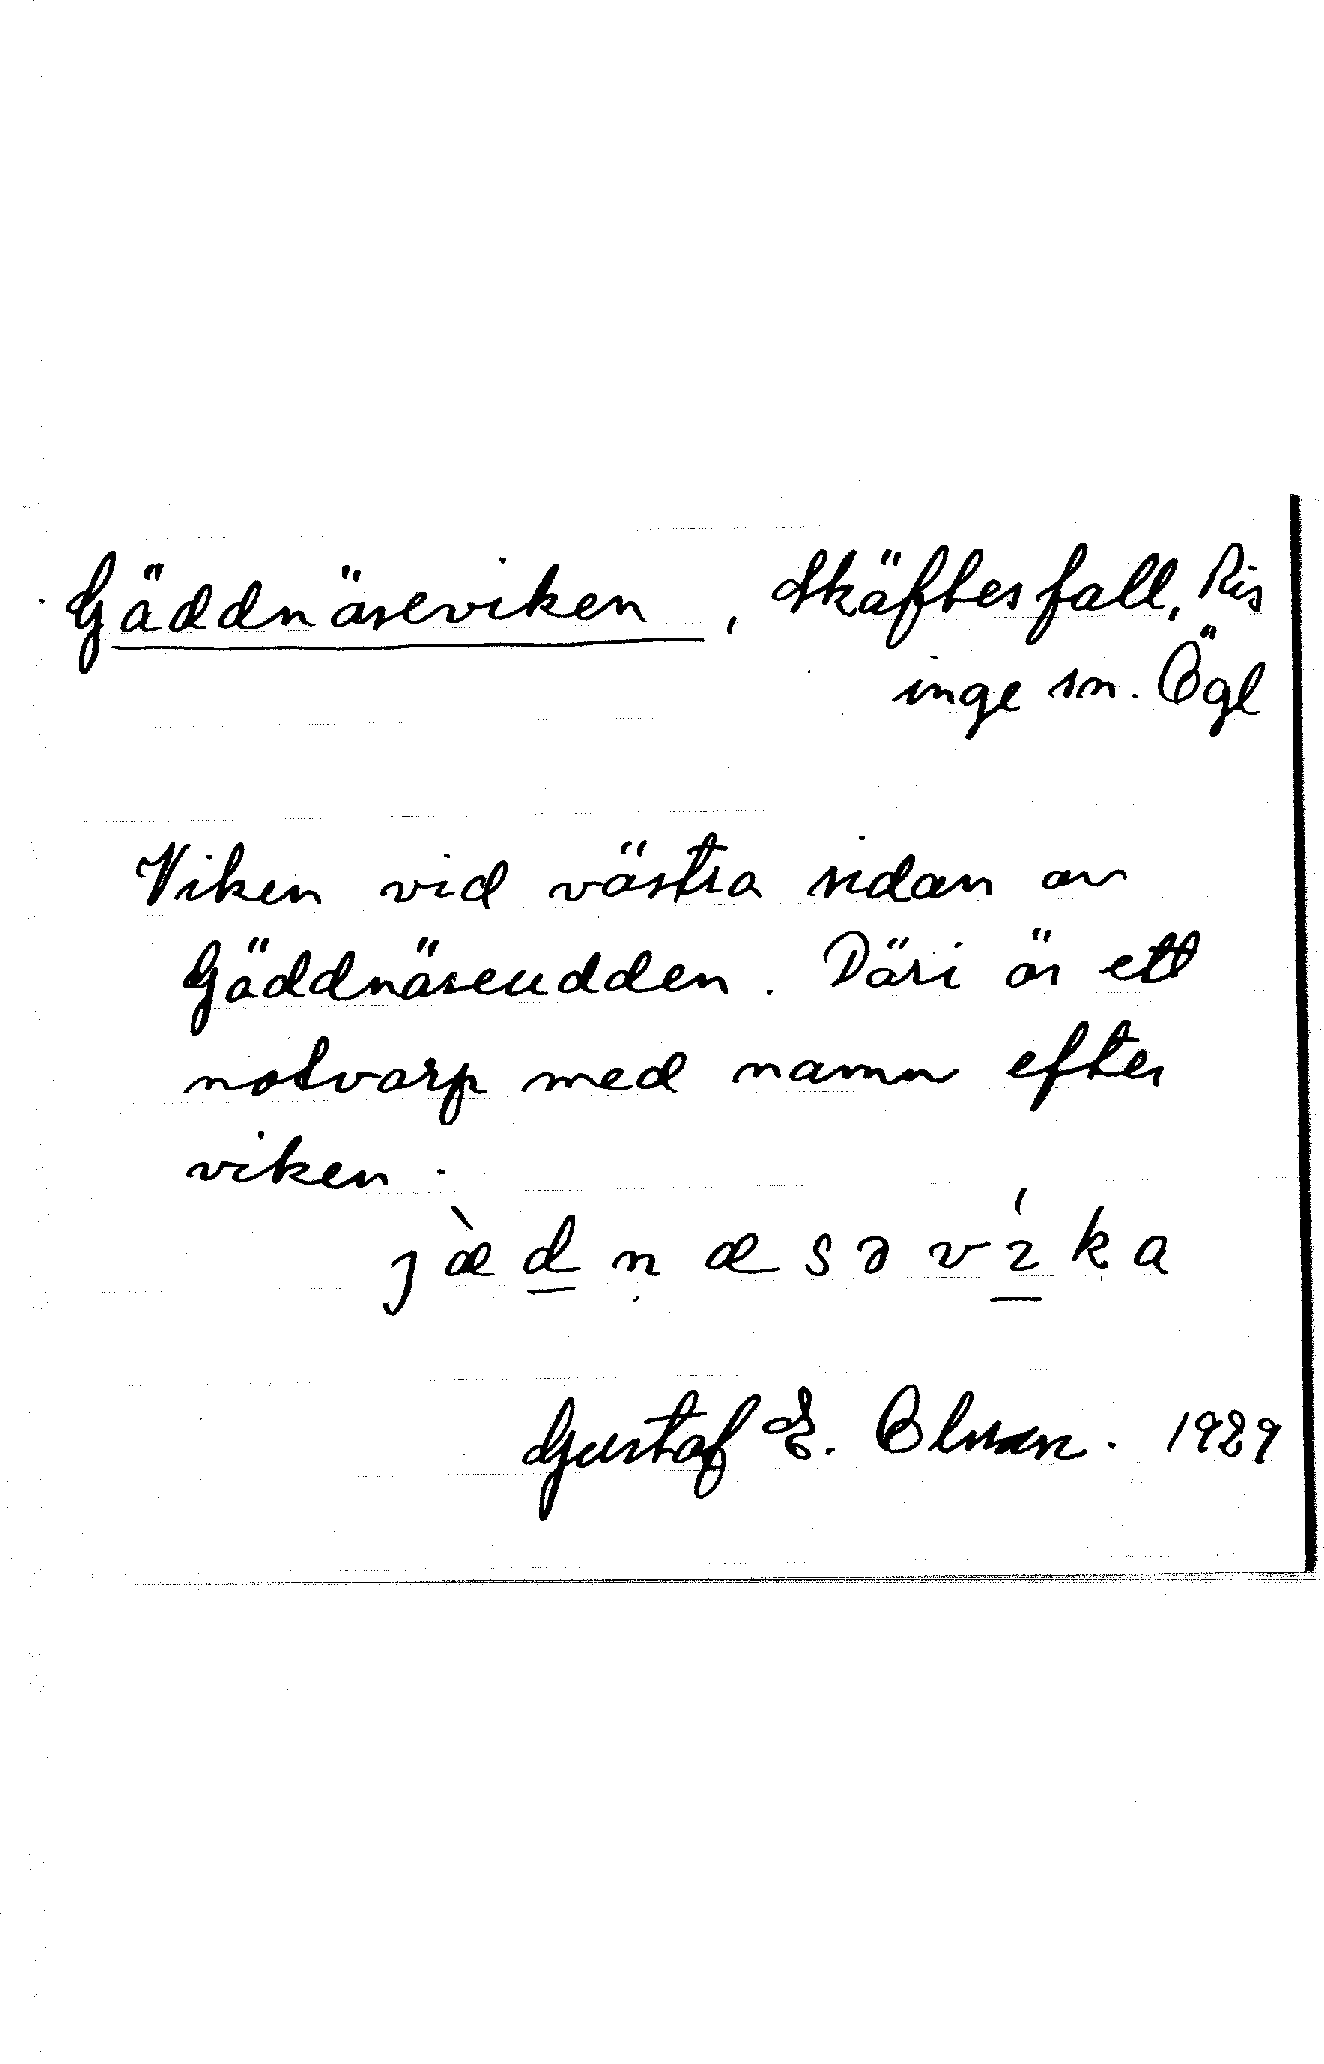 Gäddnäseviken, Skäftesfall, Ris
inge sn. Ögl
Viken vid västra sidan av
Gäddnäseudden. Däri är ett
notvarp med namn efter
viken.
jæ̀d̲næsəví̲ka
Gustaf E. Olsson. 1929